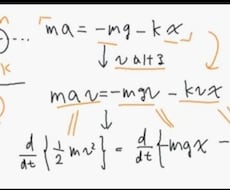 … 「ma = -mg - kx」
k
↓ v かける
mav = -mgv - kvx
↓
d/dt {1/2 mv²} = d/dt {-mgx -